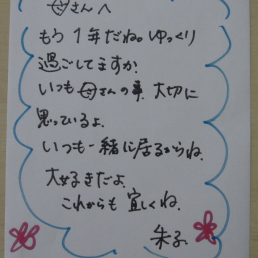 母さんへ
もう1年だね。ゆっくり
過ごしてますか
いつも母さんの事、大切に
思っているよ。
いつも一緒に居るからね、
大好きだよ、
これからも宜しくね、
朱子、